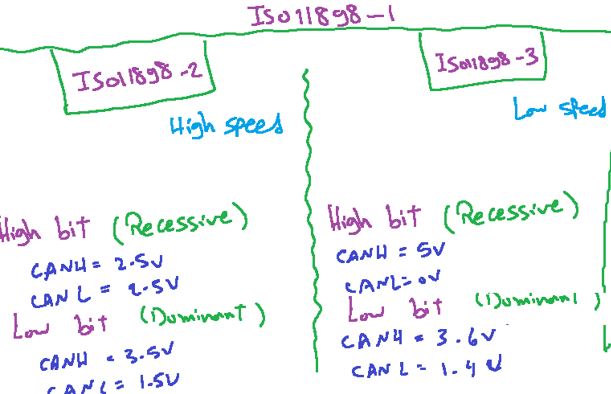 ISO11898-1
ISO11898-2
High speed
High bit (Recessive)
CANH = 2.5V
CANL = 2.5V
Low bit (Dominant)
CANH = 3.5V
CANL = 1.5V
ISO11898-3
Low speed
High bit (Recessive)
CANH = 5V
CANL = 0V
Low bit (Dominant)
CANH = 3.6V
CANL = 1.4V